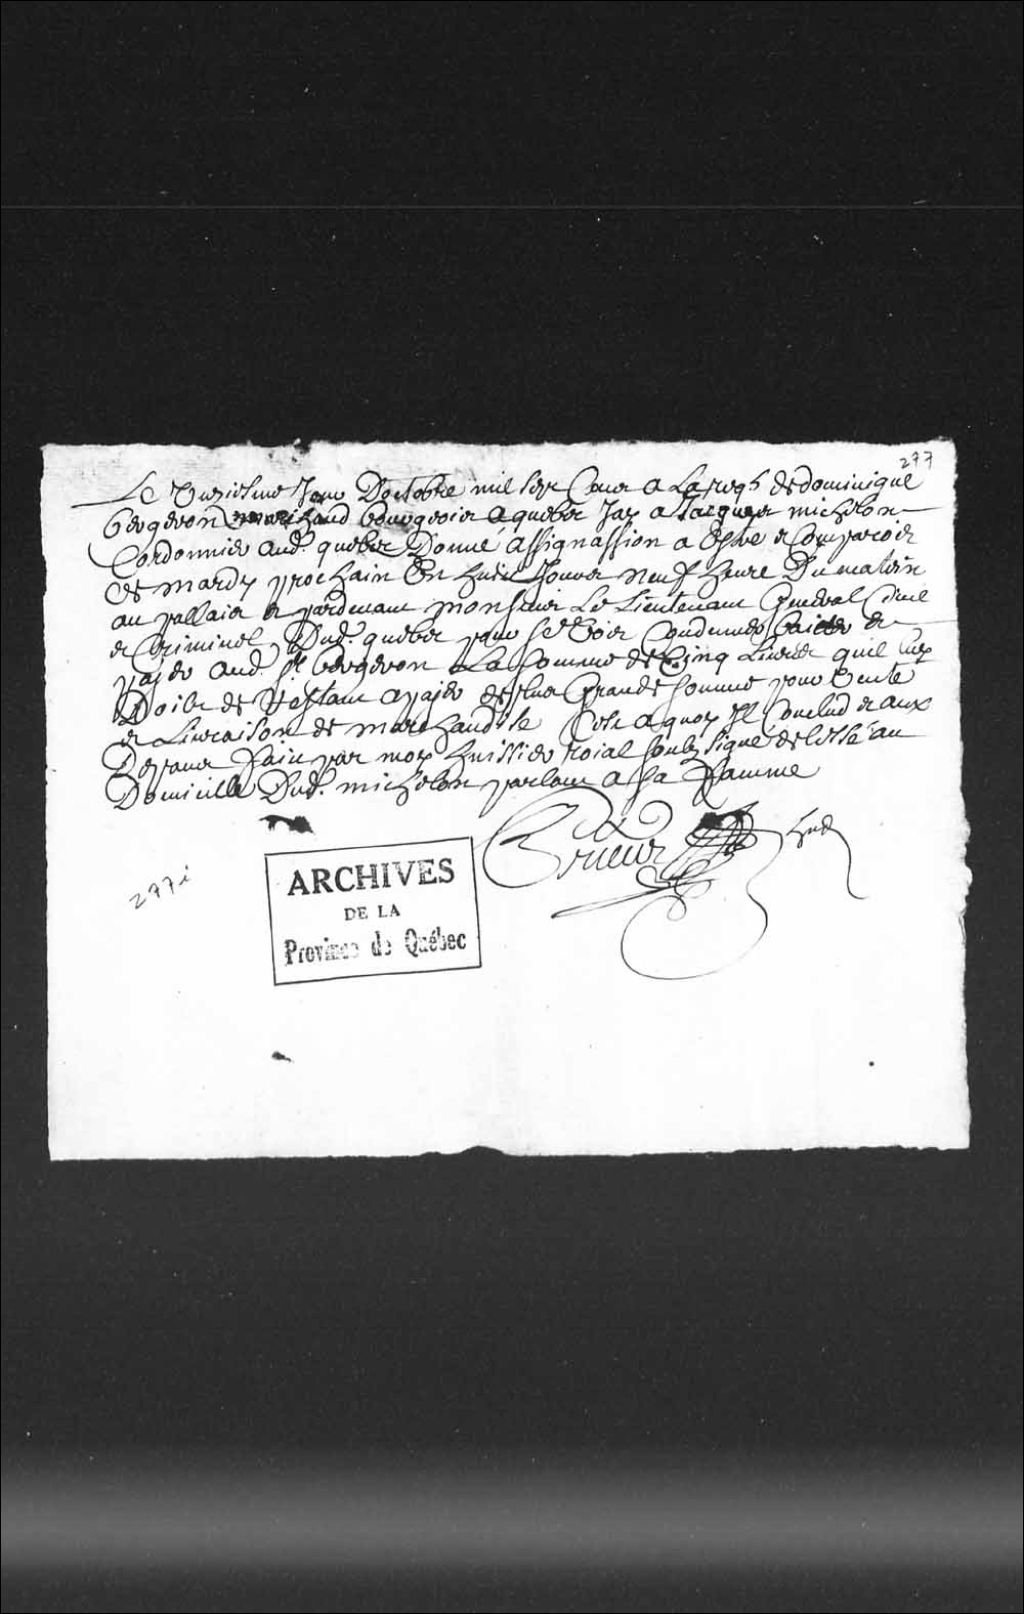 277
Le Unziesme Jour Doctobre mil sept Cens a La reqte de dominique
bergeron marchand bourgeois a quebec Jay a Jacques michelon
Cordonnier aud. quebec Donné assignassion a Estre et Comparoir
de mardy prochain En huict Jours neuf heure Du matin
au pallais et pardevant monsieur Le Lieutenant General Civil
et Criminel Dud. quebec pour se Voir Condemner de
payer aud. Sr bergeron La somme de Cinq Livres quil luy
Doibt de Restant a payer de plus Grande somme pour Vente
et Livraison de marchandise Cest a quoy Il Conclud et aux
Despans fait par moy huissier roial soubz signé delessé au
Domicille Dud. michelon parlant a sa famme
Prieur
277 i
ARCHIVES
DE LA
Province de Québec